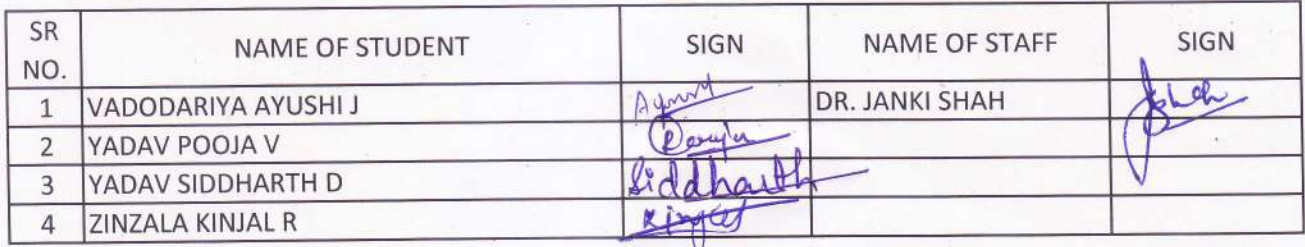 SR NO. NAME OF STUDENT SIGN NAME OF STAFF SIGN
1 VADODARIYA AYUSHI J DR. JANKI SHAH
2 YADAV POOJA V
3 YADAV SIDDHARTH D Siddharth
4 ZINZALA KINJAL R